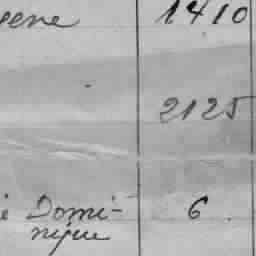 gene 1410
2125
é Domi- 6
nique